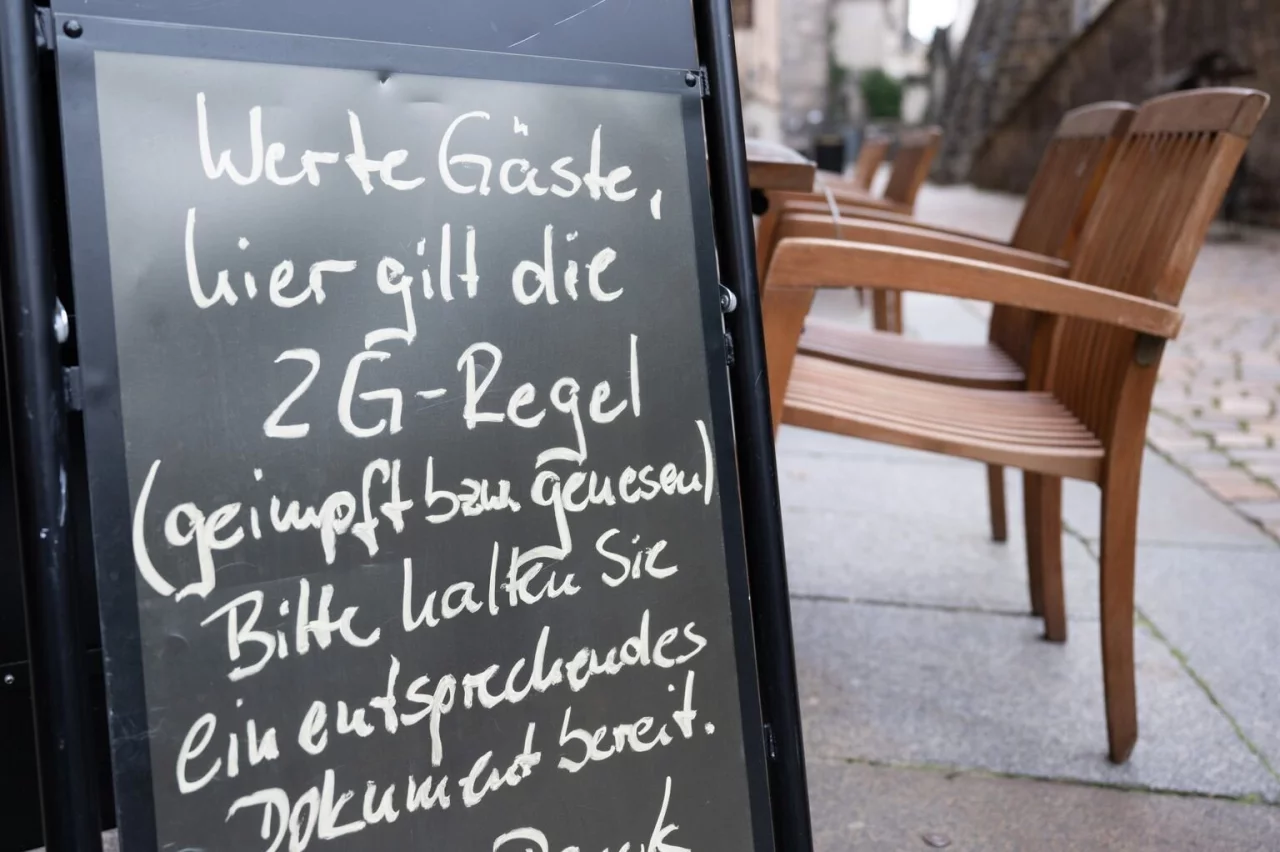 Werte Gäste,
hier gilt die
2G-Regel
(geimpft bzw. genesen)
Bitte halten Sie
ein entsprechendes
Dokument bereit.
Dank